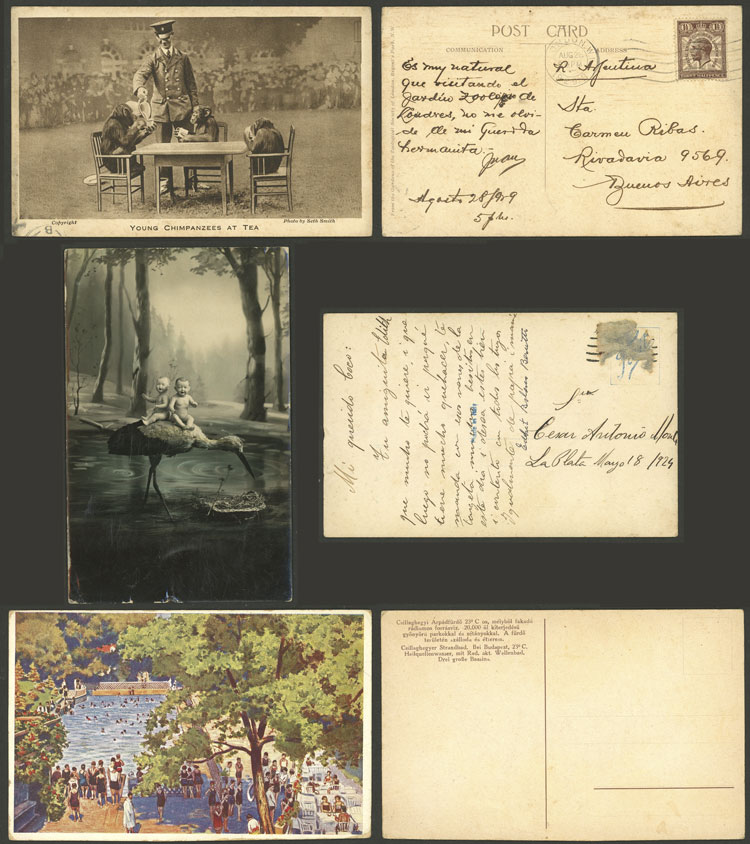 Copyright
Photo by Seth Smith
YOUNG CHIMPANZEES AT TEA
POST CARD
COMMUNICATION
ADDRESS
Es muy natural
que visitando el
Jardin Zoologo de
Londres, no me olvi-
de de mi querida
hermanita.-
Juan
Agosto 28/929
5 p.m.
R. Argentina
Sta
Carmen Ribas.
Rivadavia 9569.
Buenos Aires
Mi querido Coco:
Tu amiguita Edith
que mucho te quiere i que
luego no podra ir porqué
tiene mucho quehacer, te
manda con esos
este dia i desea estes bien
i contento en todos los tuyos.
de papá i mamá
Edith
Cesar Antonio
La Plata Mayo 18/924
Csillaghegyi Árpádfürdő 23° C os, mélyből fakadó
rádiumos forrásvíz. 20,000 öl kiterjedésű
gyönyörű parkokkal és sétányokkal. A fürdő
területén szálloda és étterem.
Csillaghegyer Strandbad. Bei Budapest, 23° C.
Heilquellenwasser, mit Rad. akt. Wellenbad.
Drei große Bassins.